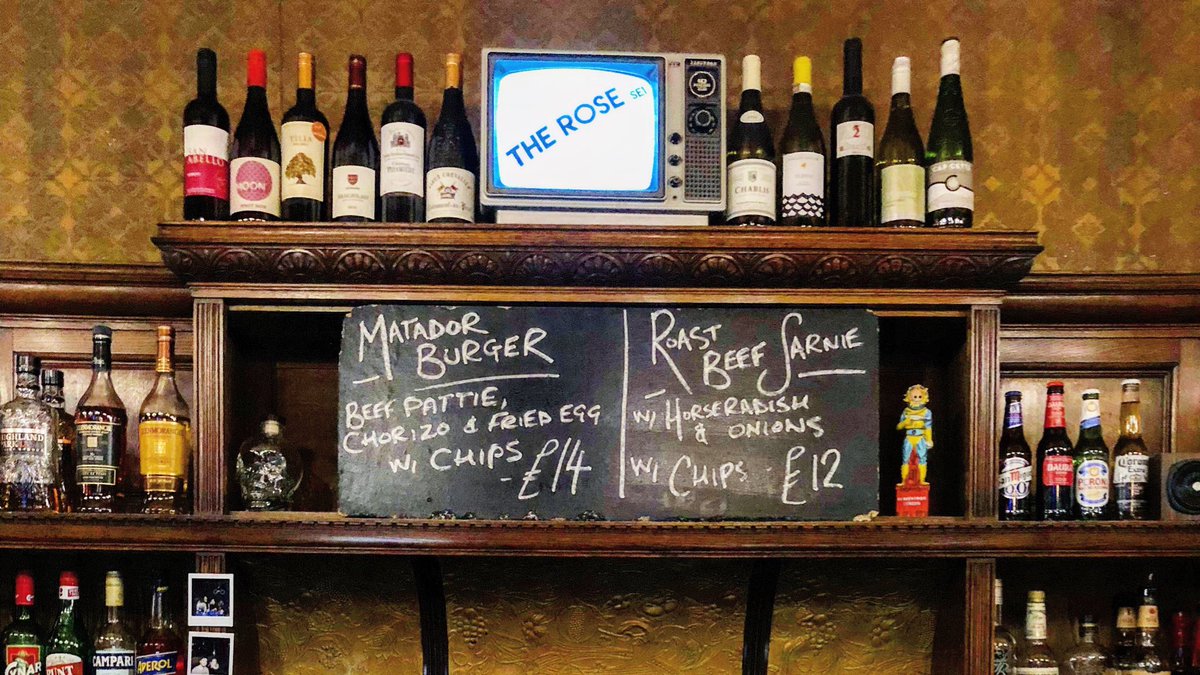 THE ROSE SE1
MOON
CHABLIS
2
MATADOR
BURGER
BEEF PATTIE,
CHORIZO & FRIED EGG
W/ CHIPS
- £14
ROAST
BEEF SARNIE
W/ HORSERADISH
& ONIONS
W/ CHIPS - £12
HIGHLAND
PERONI
CYNAR
CAMPARI
APEROL